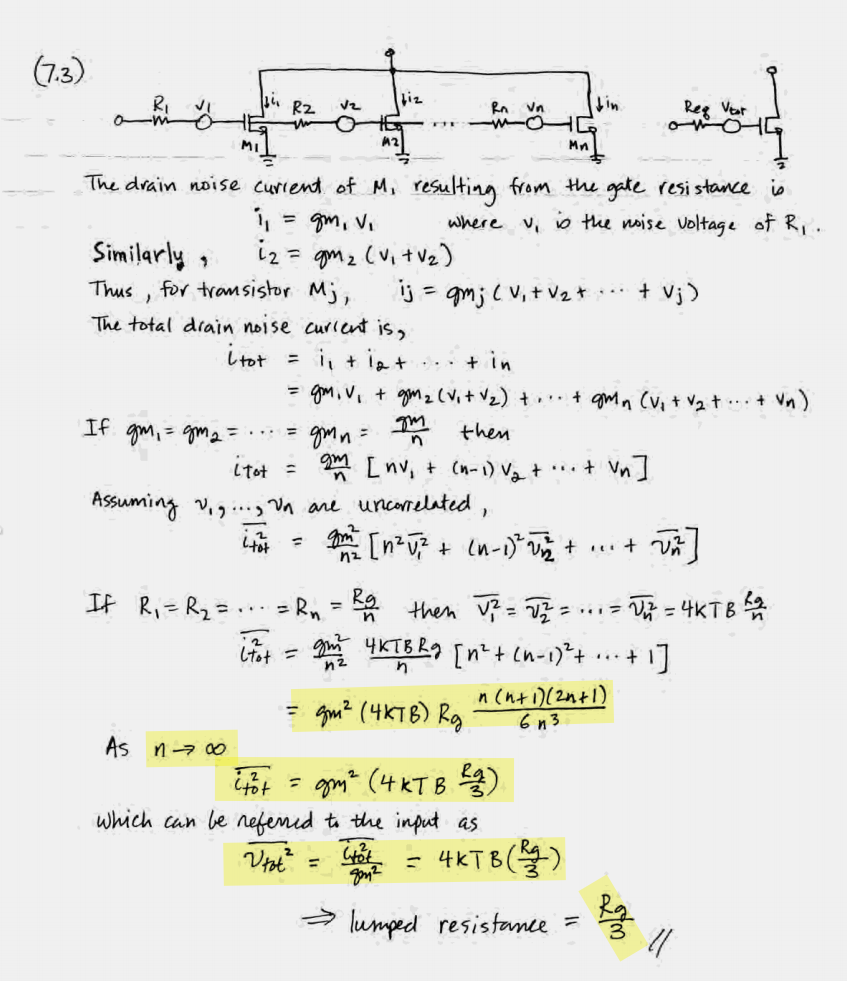 (7.3)
R₁ v₁ ↓i₁ R₂ v₂ ↓i₂ Rn vn ↓in Req Vtot
M₁ M₂ ... Mn
The drain noise current of M₁ resulting from the gate resistance is
i₁ = gm₁ v₁ where v₁ is the noise voltage of R₁.
Similarly, i₂ = gm₂ (v₁+v₂)
Thus, for transistor Mj, ij = gmj (v₁+v₂+ ... + vj)
The total drain noise current is,
itot = i₁ + i₂ + .... + in
= gm₁v₁ + gm₂(v₁+v₂) + ... + gmn (v₁+v₂+...+ vn)
If gm₁ = gm₂ = ... = gmn = gm/n then
itot = gm/n [nv₁ + (n-1)v₂ + ... + vn]
Assuming v₁, ..., vn are uncorrelated,
i̅t̅o̅t̅² = gm²/n² [n² v̅₁² + (n-1)² v̅₂² + ... + v̅n²]
If R₁ = R₂ = ... = Rn = Rg/n then v̅₁² = v̅₂² = ... = v̅n² = 4KTB Rg/n
i̅t̅o̅t̅² = gm²/n² 4KTBRg/n [n² + (n-1)² + ... + 1]
= gm² (4KTB) Rg n(n+1)(2n+1)/6n³
As n → ∞
i̅t̅o̅t̅² = gm² (4KTB Rg/3)
which can be referred to the input as
v̅t̅o̅t̅² = i̅t̅o̅t̅²/gm² = 4KTB(Rg/3)
⇒ lumped resistance = Rg/3 //